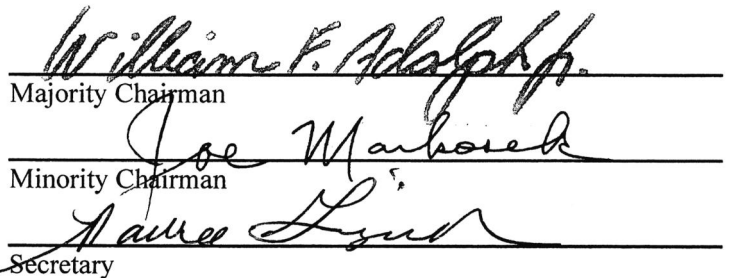 William F. Adolph Jr.
Majority Chairman
Joe Markosek
Minority Chairman
Lynch
Secretary